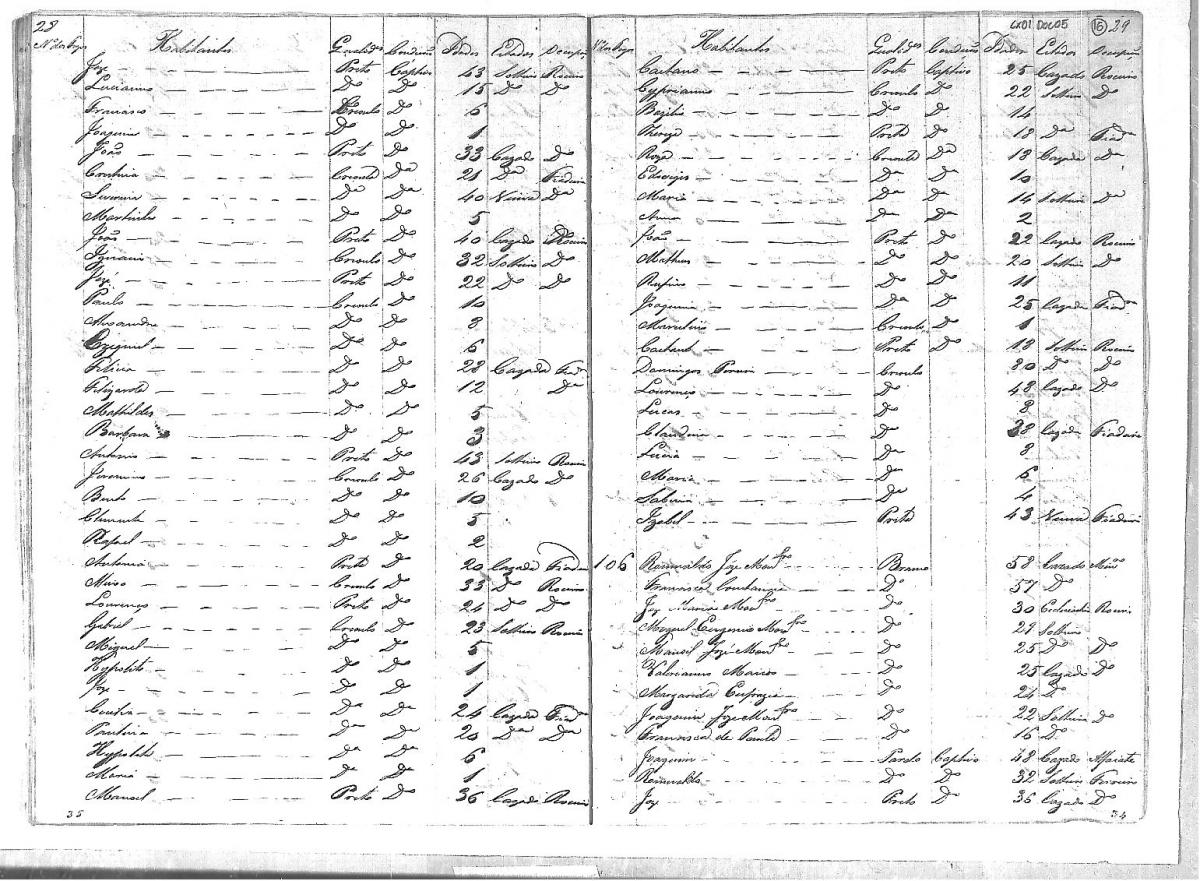 28
Habitantes Qualides Condição Idades Estados Ocupação
Joze Preto Captivo 43 Solteiro Roceiro
Luciano Do Do 15 Do Do
Francisco Crioulo Do 6
Joaquim Do Do 1
João Preto Do 33 Cazado Do
Crioula Da 21 Da Fiadeira
Severina Da Da 40 Viuva Da
Martinho Do Do 5
João Preto Do 40 Cazado Roceiro
Ignacio Crioulo Do 32 Solteiro Do
José Preto Do 22 Do Do
Paulo Crioulo Do 10
Do Do 8
Ezequiel Do Do 6
Felicia Do Do 28 Cazada Fiada
Felizarda Do Do 12 Da
Mathildes Do Do 5
Barbara Do Do 3
Antonio Preto Do 43 Solteiro Roceiro
Jeronimo Crioulo Do 26 Cazado Do
Bento Do Do 10
Clemente Do Do 5
Rafael Do Do 2
Antonia Preta Do 20 Cazada Fiadeira
Crioulo Do 33 Do Roceiro
Lourenço Preto Do 24 Do Do
Gabriel Crioulo Do 23 Solteiro Roceiro
Miguel Do Do 5
Hypolito Do Do 1
Joze Do Do 1
Da Da 24 Cazada Fiada
Da Da 20 Da Da
Hypolita Da Da 6
Maria Da Da 1
Manoel Preto Do 36 Cazado Roceiro
35
CX01 DOC05 16 29
Habitantes Qualides Condição Idades Estados Ocupação
Caetano Preto Captivo 25 Cazado Roceiro
Cypriano Crioulo Do 22 Solteiro Do
Bazilio Do Do 14
Thereza Preta Do 18 Da Fiada
Roza Crioula Da 18 Cazada Da
Edwiges Da Da 10
Maria Da Da 14 Solteira Da
Anna Da Da 2
João Preto Do 22 Cazado Roceiro
Matheus Do Do 20 Solteiro Do
Rufino Do Do 11
Joaquina Da Do 25 Cazada Fiada
Marcelino Crioulo Do 1
Caetano Preto Do 18 Solteiro Roceiro
Domingos Crioulo 30 Do Do
Lourenço Do 48 Cazado Do
Lucas Do 8
Claudina Da 38 Cazada Fiadeira
Luiza Da 8
Maria Da 6
Sabina Da 4
Izabel Preta 43 Viuva Fiadeira
106 Romualdo Joze Monro Branco 58 Cazado
Francisca Do 57 Do
Joze Maria Monro Do 30 Roceiro
Miguel Eugenio Monro Do 29 Solteiro
Manoel Jozé Monro Do 25 Do Do
Valeriano Do 25 Cazado Do
Margarida Eufrazia Do 24 Do
Joaquim Joze Monro Do 22 Solteiro Do
Francisca de Paula Do 16 Do
Joaquim Pardo Captivo 48 Cazado Alfaiate
Romualdo Do Do 32 Solteiro Ferreiro
Joze Preto Do 36 Cazado Do
34